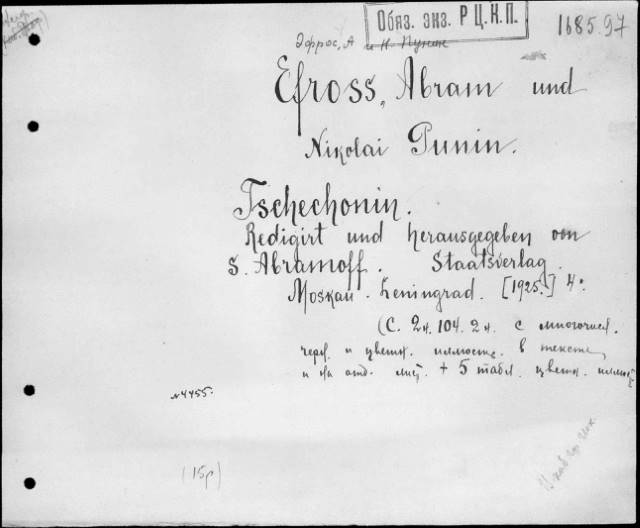 Обяз. экз. Р Ц.К.П.
1685.97
Эфрос, А и Н. Пунин
Efross, Abram und
Nikolai Punin.
Tschechonin.
Redigirt und herausgegeben von
S. Abramoff. Staatsverlag
Moskau - Leningrad. [1925.] 4°.
(С. 2н. 104. 2н. с многочисл.
черн. и цветн. иллюстр. в тексте
и на отд. лист. + 5 табл. цветн. иллюстр.
№4455.
(15р)